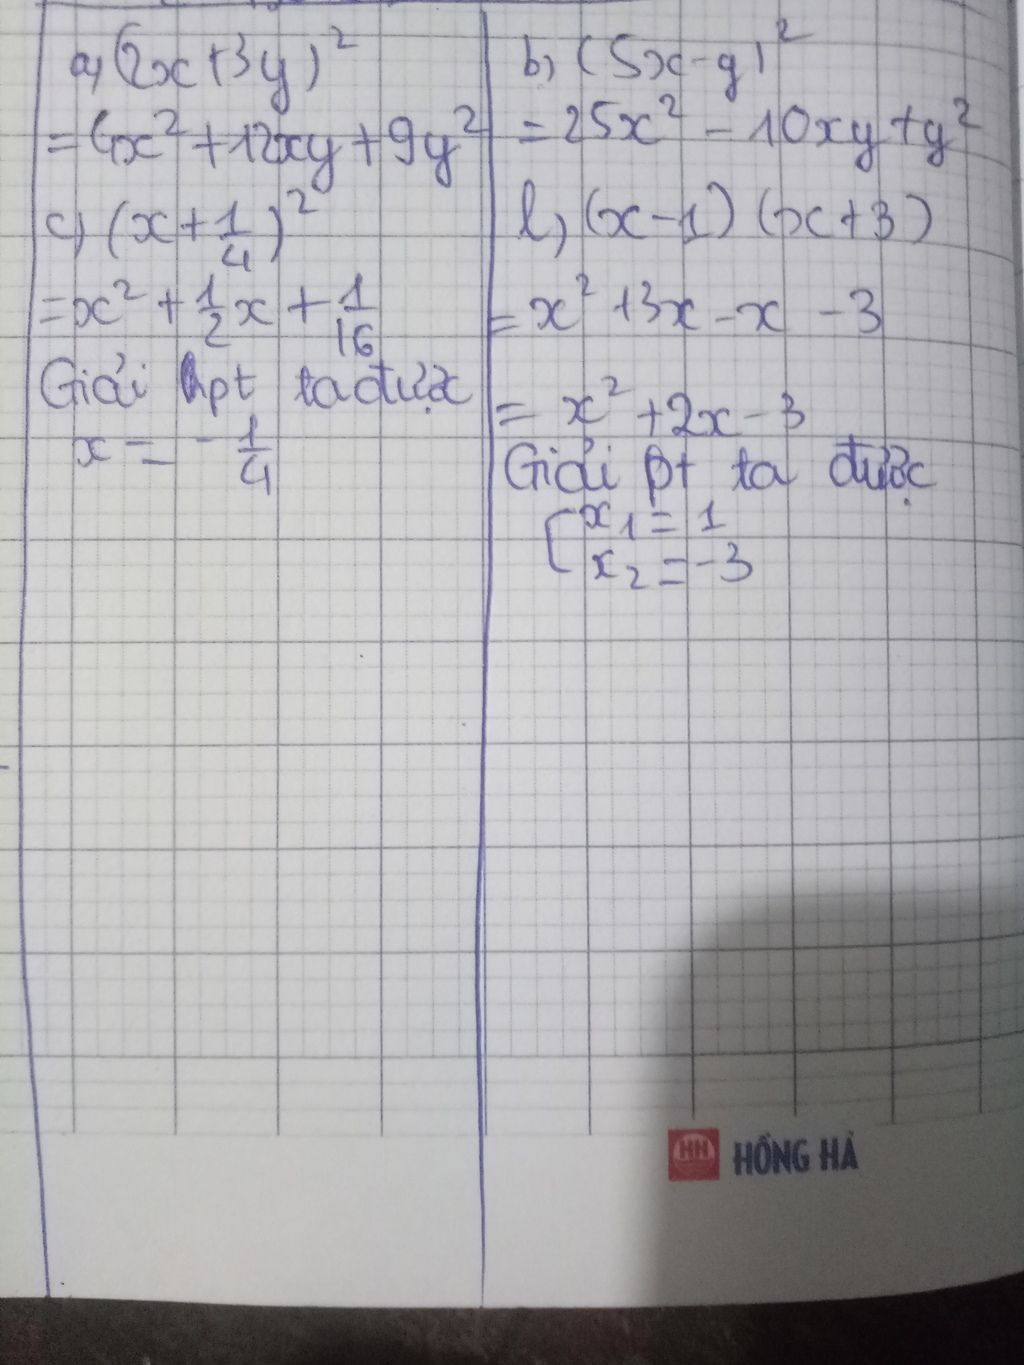 a) (2x+3y)²
= 4x² + 12xy + 9y²
c) (x + 1/4)²
= x² + 1/2 x + 1/16
Giải hpt ta được
x = -1/4
b) (5x-y)²
= 25x² - 10xy + y²
l) (x-1) (x+3)
= x² + 3x - x - 3
= x² + 2x - 3
Giải pt ta được
[x₁ = 1
x₂ = -3
HH HỒNG HÀ